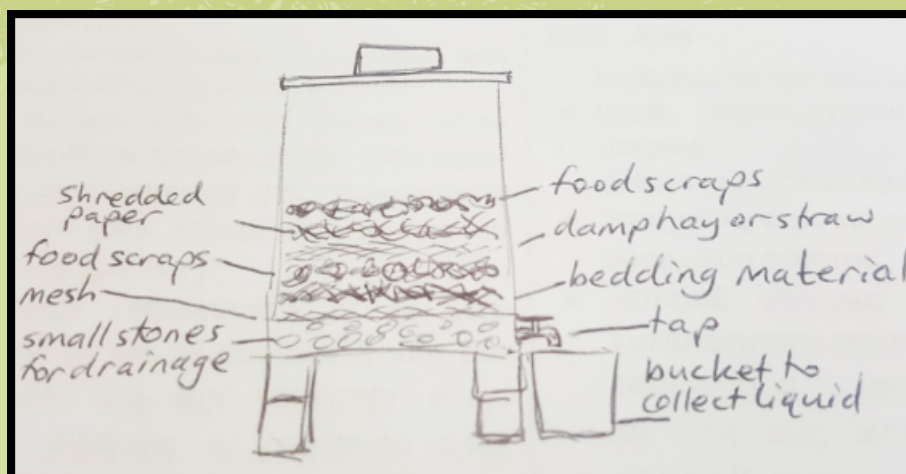 shredded
paper
food scraps
mesh
small stones
for drainage
food scraps
damp hay or straw
bedding material
tap
bucket to
collect liquid